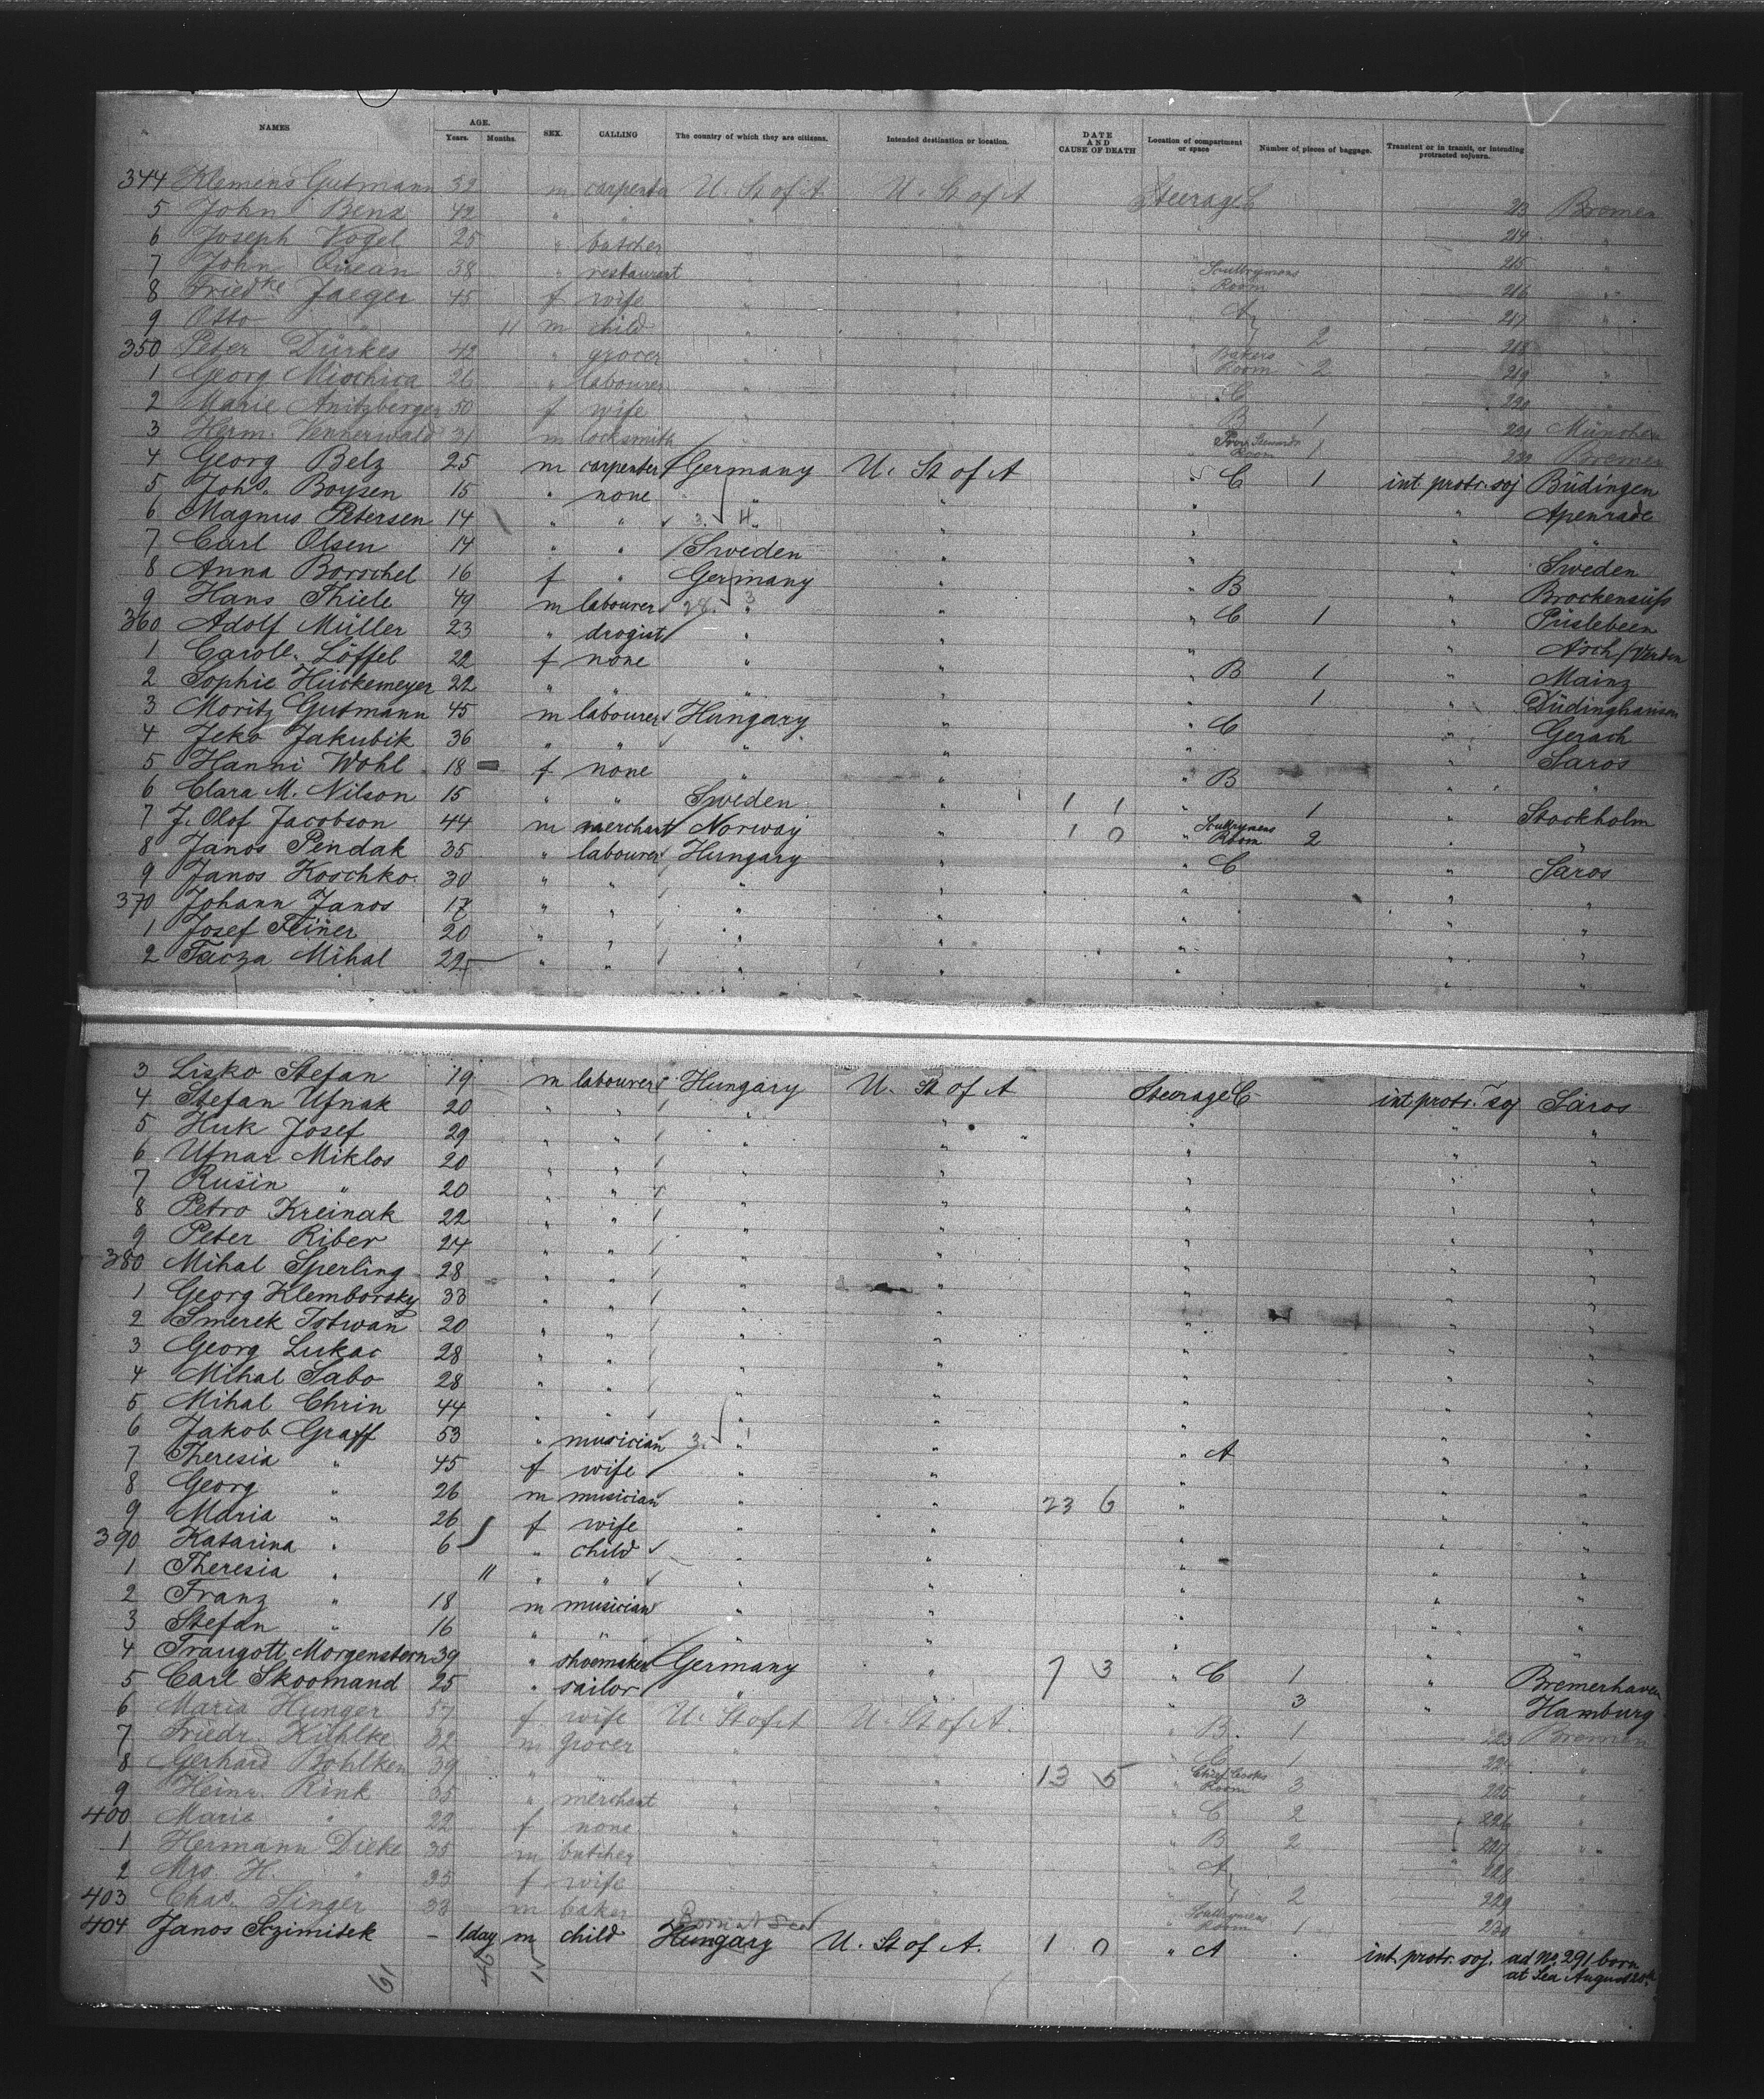 NAMES AGE. Years. Months. SEX. CALLING The country of which they are citizens. Intended destination or location. DATE AND CAUSE OF DEATH Location of compartment or space Number of pieces of baggage. Transient or in transit, or intending protracted sojourn.
344 Klemens Gutmann 32 m carpenter U. St of A U. St of A Steerage C 213 Bremen
5 John Benz 42 " " " " 214 "
6 Joseph Vogel 25 " butcher " " 215 "
7 John 38 " restaurant " " Scullrymens Room 216 "
8 Friedke Jaeger 45 f wife " " " A 217 "
9 Otto " 11 m child " " " 2 218 "
350 Peter Dürkes 42 " grocer " " " Bakers Room 2 219 "
1 Georg Miochica 26 " labourer " " " C 220 "
2 Marie Anitzberger 50 f wife " " " B 1 221 München
3 Herm. Vennerwald 31 m locksmith " " " Stewards Room 1 222 Bremen
4 Georg Belz 25 m carpenter Germany U. St of A " C 1 int. protr. soj Büdingen
5 Johs. Boysen 15 " none " " " " Apenrade
6 Magnus Petersen 14 " " 3. 4 " " " " "
7 Carl Olsen 14 " " Sweden " " " Sweden
8 Anna Borschel 16 f " Germany " " B " Brockensüss
9 Hans Thiele 49 m labourer 28. 3 " " " C 1 " Püslebeen
360 Adolf Müller 23 " drogist " " " " Asch/Verden
1 Caroll. Löffel 22 f none " " " B 1 " Mainz
2 Sophie Hückemeyer 22 " " " " " 1 " Düdinghausen
3 Moritz Gutmann 45 m labourer Hungary " " C " Gerach
4 Jeko Jakubik 36 " " " " " " Saros
5 Hanni Wohl 18 f none " " " B " "
6 Clara M. Nilson 15 " " Sweden " 1 1 " 1 " Stockholm
7 J. Olof Jacobson 44 m merchant Norway " 1 0 Scullrymens Room 2 " "
8 Janos Pendak 35 " labourer Hungary " " C " Saros
9 Janos Koschko. 30 " " " " " " "
370 Johann Janos 17 " " " " " " "
1 Josef Feiner 20 " " " " " " "
2 Tacza Mihal 22 " " " " " " "
3 Lisko Stefan 19 m labourer Hungary U. St of A Steerage C int protr. soj Saros
4 Stefan Ufnak 20 " " " " " " "
5 Huk Josef 29 " " " " " " "
6 Ufnar Miklos 20 " " " " " " "
7 Rusin " 20 " " " " " " "
8 Petro Kreinak 22 " " " " " " "
9 Peter Riber 24 " " " " " " "
380 Mihal Sperling 28 " " " " " " "
1 Georg Klemborsky 33 " " " " " " "
2 Smerek Istwan 20 " " " " " " "
3 Georg Lukac 28 " " " " " " "
4 Mihal Sabo 28 " " " " " " "
5 Mihal Chrin 44 " " " " " " "
6 Jakob Graff 53 " musician 3. 1 " " " A " "
7 Theresia " 45 f wife " " " " "
8 Georg " 26 m musician " " 23 6 " " "
9 Maria " 26 f wife " " " " "
390 Katarina " 6 " child " " " " "
1 Theresia " 11 " " " " " " "
2 Franz " 18 m musician " " " " "
3 Stefan " 16 " " " " " " "
4 Traugott Morgenstern 39 " shoemaker Germany " 7 3 " C 1 " Bremerhaven
5 Carl Skoomand 25 " sailor " " " 3 " Hamburg
6 Maria Hunger 57 f wife U. St of A U. St of A. " B. 1 223 Bremen
7 Friedr. Kühlke 32 m grocer " " " C 1 224 "
8 Gerhard Bohlken 39 " " " " 13 5 " Chief Cooks Room 3 225 "
9 Heinr. Rink 35 " merchant " " " C 2 226 "
400 Marie " 22 f none " " " B 2 227 "
1 Hermann Dieke 35 m butcher " " " A 228 "
2 Mrs. H. " 35 f wife " " " 2 229 "
403 Chas. Singer 33 m baker " " Scullrymens Room 1 230 "
Born at Sea
404 Janos Sczimitek – 1 day m child Hungary U. St of A. 1 0 " A " int. protr. soj. ad No. 291 born
at Sea August 20th
61